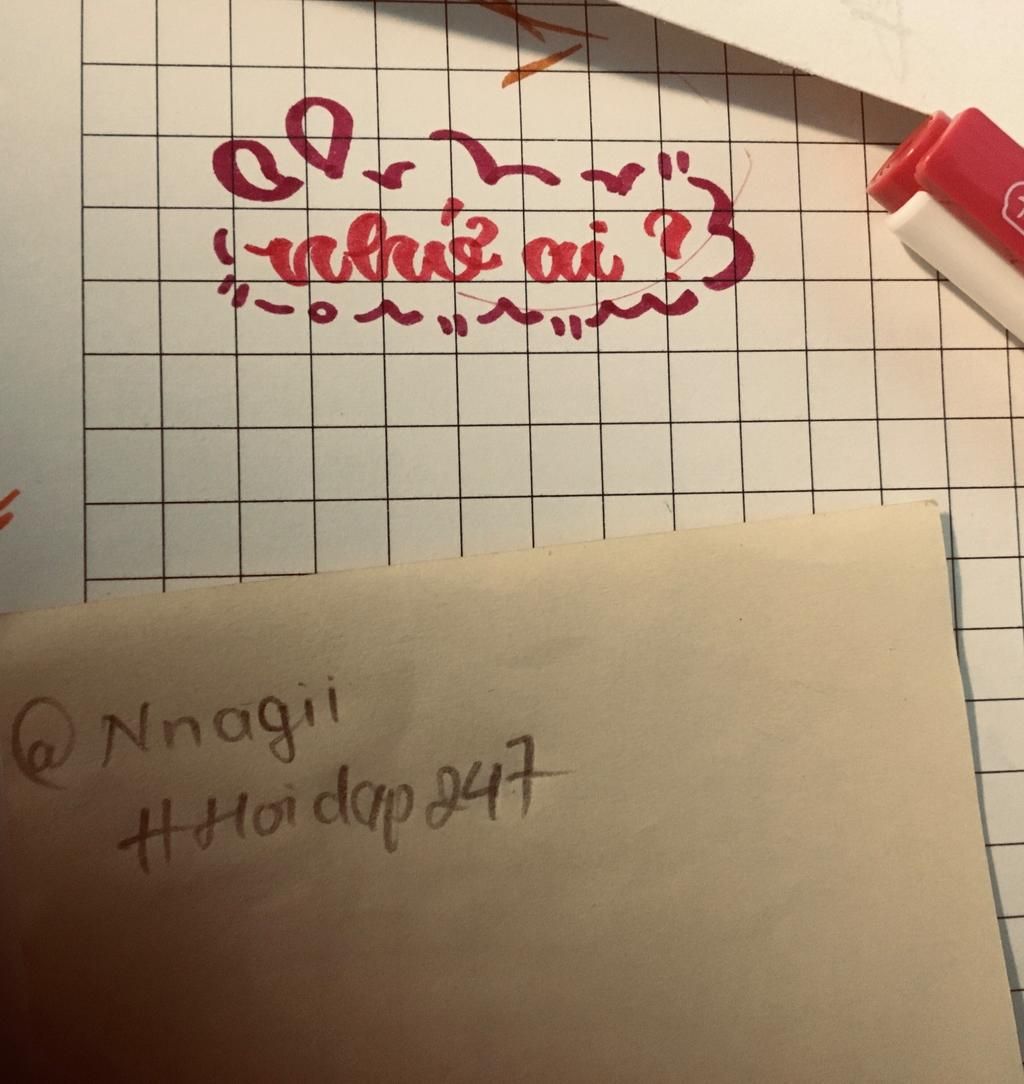 nhớ ai ?
@Nnagii
#Hoidap247